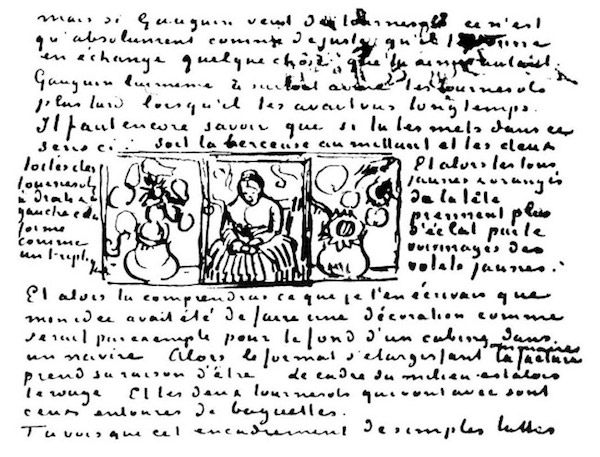 mais si Gauguin veut des tournesols ce n'est
qu'absolument comme de juste qu'il te donne
en échange quelque chose que tu aimes autant.
Gauguin lui meme a surtout aimé les tournesols
plus tard lorsqu'il les avait vus longtemps.
Il faut encore savoir que si tu les mets dans ce
sens ci soit la berceuse au milieu et les deux
toiles des
tournesols
à droite & à
gauche cela
forme
comme
un triptyque
Et alors les tons
jaunes & orangés
de la tête
prennent plus
d'éclat par les
voisinages des
volets jaunes.
Et alors tu comprendras ce que je t'en écrivais que
mon idee avait été de faire une décoration comme
serait par exemple pour le fond d'un cabine dans
un navire Alors le format s'elargissant la facture
sommaire
prend sa raison d'être le cadre du milieu est alors
le rouge Et les deux tournesols qui vont avec sont
ceux entourés de baguettes.
Tu vois que cet encadrement de simples lattes